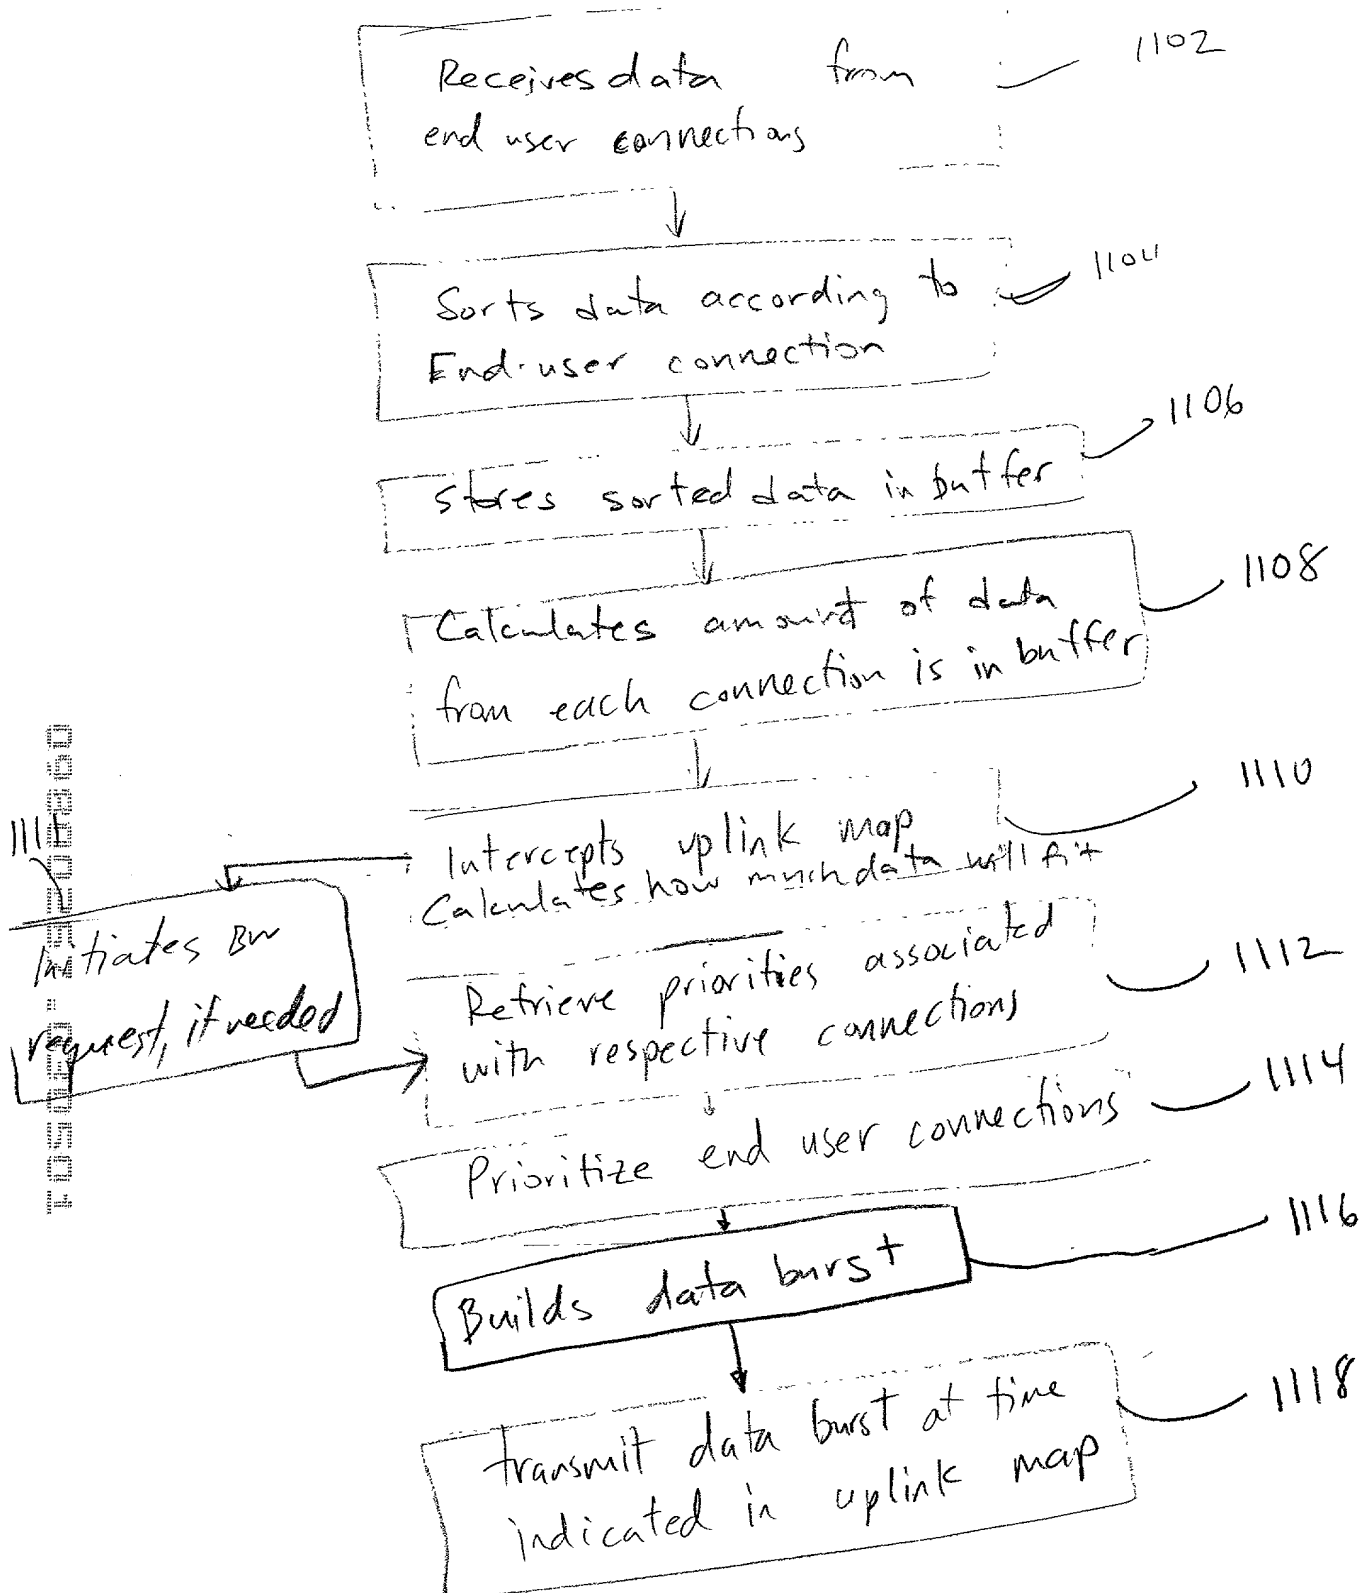 Receives data from
end user connections
1102
Sorts data according to
End-user connection
1104
Stores sorted data in buffer
1106
Calculates amount of data
from each connection is in buffer
1108
Intercepts uplink map
Calculates how much data will fit
1110
1111
Initiates BW
request, if needed
Retrieve priorities associated
with respective connections
1112
Prioritize end user connections
1114
Builds data burst
1116
transmit data burst at time
indicated in uplink map
1118